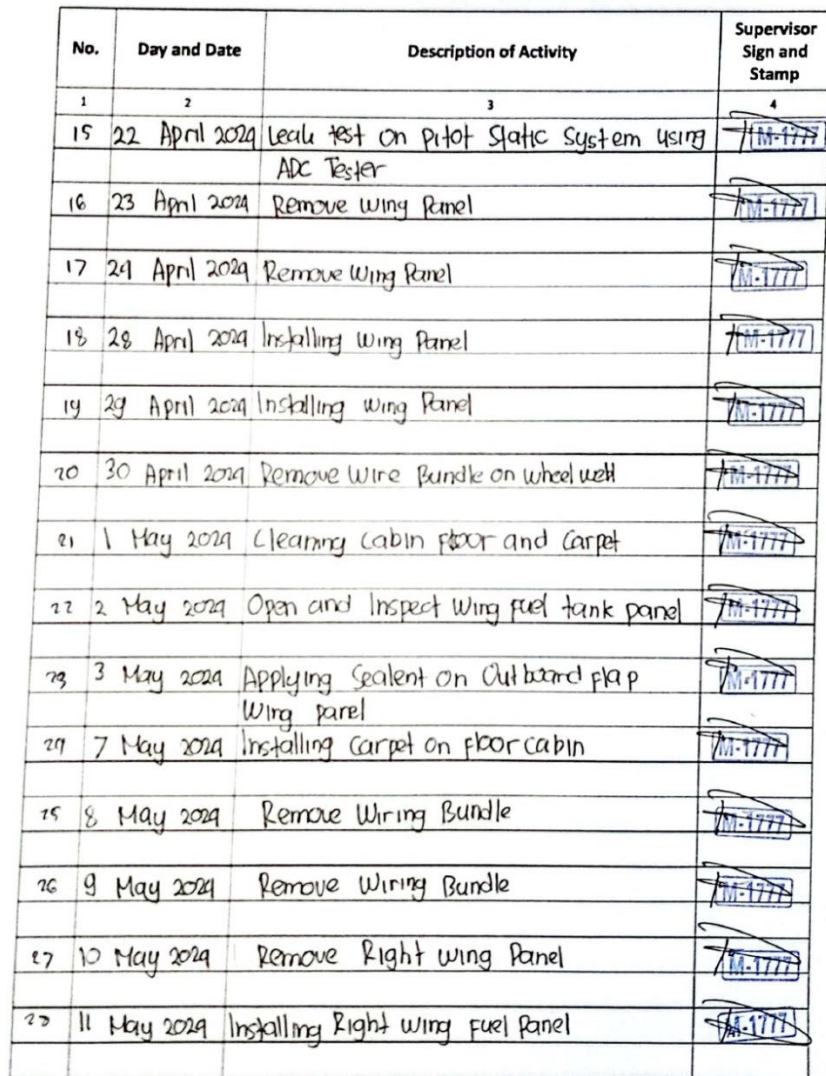 No. Day and Date Description of Activity Supervisor Sign and Stamp
1 2 3 4
15 22 April 2024 Leak test on Pitot Static System using M-1777
ADC Tester
16 23 April 2024 Remove Wing Panel M-1777
17 24 April 2024 Remove Wing Panel M-1777
18 28 April 2024 Installing Wing Panel M-1777
19 29 April 2024 Installing Wing Panel M-1777
20 30 April 2024 Remove Wire Bundle on wheel well M-1777
21 1 May 2024 Cleaning Cabin floor and Carpet M-1777
22 2 May 2024 Open and Inspect Wing fuel tank panel M-1777
23 3 May 2024 Applying Sealent on Outboard flap M-1777
Wing panel
24 7 May 2024 Installing Carpet on floor cabin M-1777
25 8 May 2024 Remove Wiring Bundle M-1777
26 9 May 2024 Remove Wiring Bundle M-1777
27 10 May 2024 Remove Right Wing Panel M-1777
28 11 May 2024 Installing Right Wing Fuel Panel M-1777